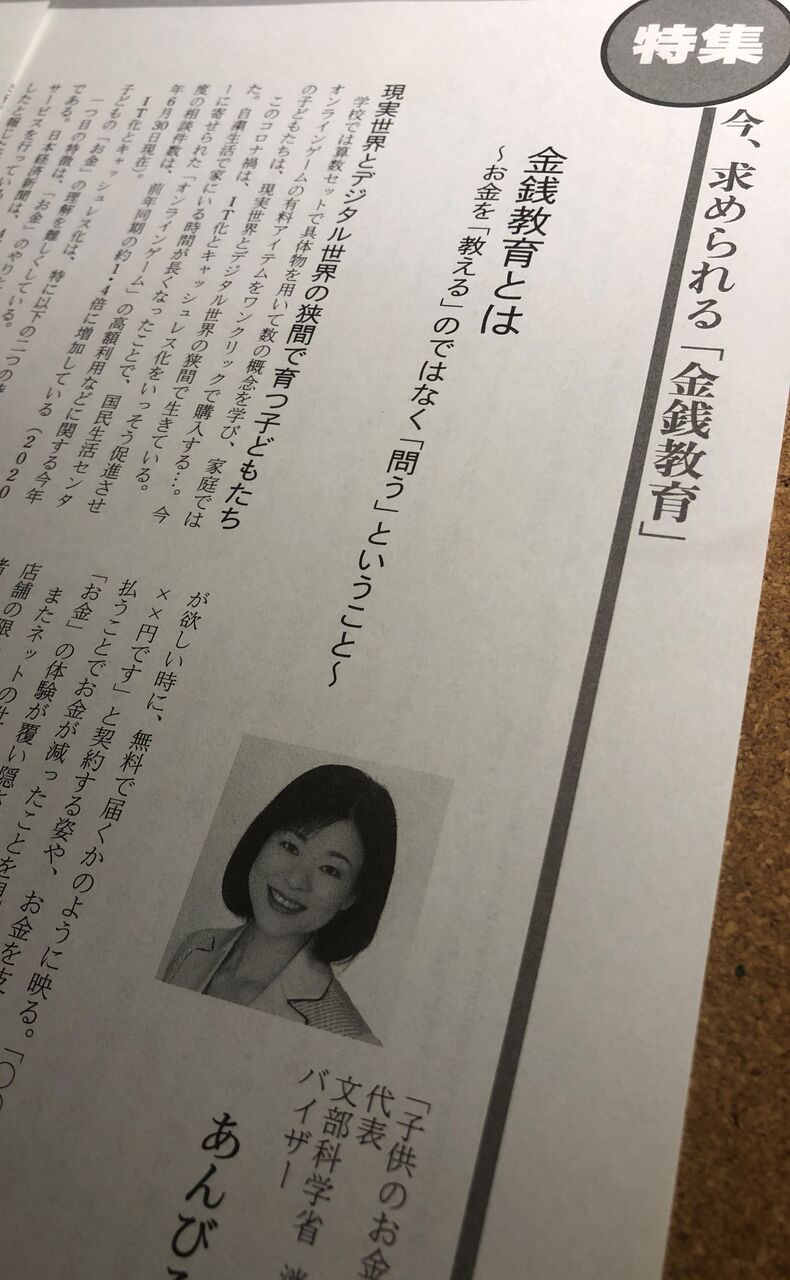 特集
今、求められる「金銭教育」
金銭教育とは
～お金を「教える」のではなく「問う」ということ～
「子供のお金
代表
文部科学省
バイザー
あんび
現実世界とデジタル世界の狭間で育つ子どもたち
学校では算数セットで具体物を用いて数の概念を学び、家庭では
オンラインゲームの有料アイテムをワンクリックで購入する…。今
の子どもたちは、現実世界とデジタル世界の狭間で生きている。
このコロナ禍は、IT化とキャッシュレス化をいっそう促進させ
た。自粛生活で家にいる時間が長くなったことで、国民生活センタ
ーに寄せられた「オンラインゲーム」の高額利用などに関する今年
度の相談件数は、前年同期の約1.4倍に増加している（2020
年6月30日現在）。
IT化とキャッシュレス化は、特に以下の二つの
子どもの「お金」の理解を難しくしている。
一つ目の特徴は、「お金」のやり
である。日本経済新聞は、
サービスを行って
したと報じ
が欲しい時に、無料で届くかのように映る。「〇〇
××円です」と契約する姿や、お金を支
払うことでお金が減ったことを
「お金」の体験が覆い隠
またネットの
店舗の限